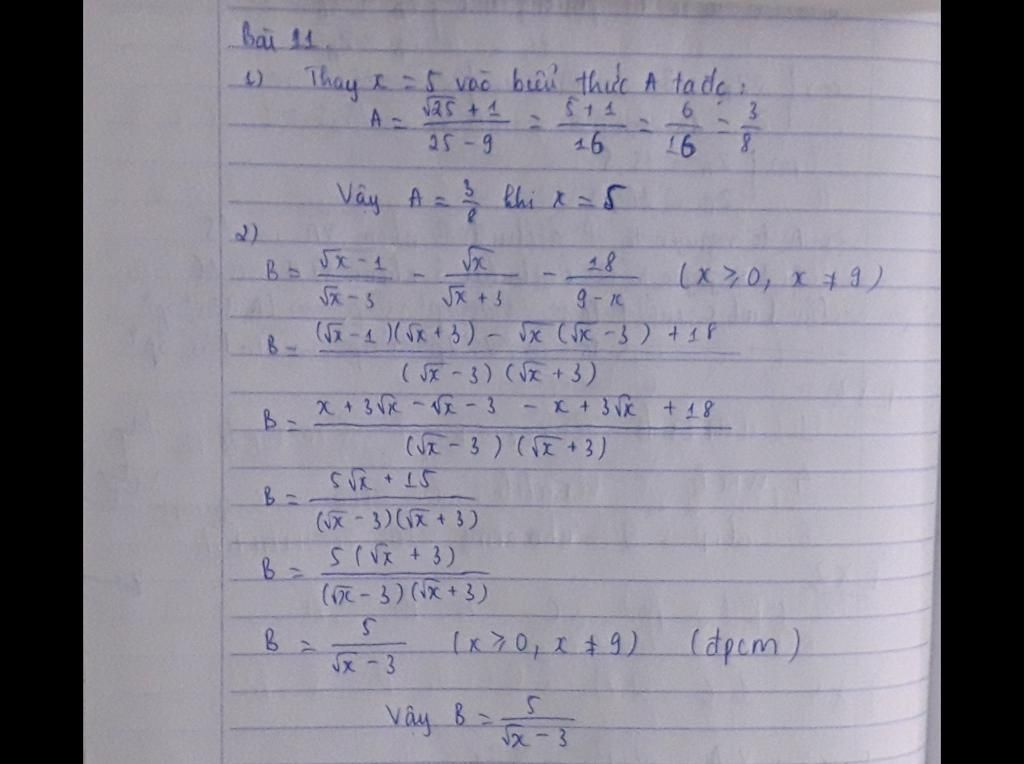 Bài 11.
1) Thay x = 5 vào biểu thức A ta đc:
A = (√25 + 1)/(25 - 9) = (5 + 1)/16 = 6/16 = 3/8
Vậy A = 3/8 khi x = 5
2)
B = (√x - 1)/(√x - 3) - √x/(√x + 3) - 18/(9 - x) (x ≥ 0, x ≠ 9)
B = ((√x - 1)(√x + 3) - √x (√x - 3) + 18)/((√x - 3)(√x + 3))
B = (x + 3√x - √x - 3 - x + 3√x + 18)/((√x - 3)(√x + 3))
B = (5√x + 15)/((√x - 3)(√x + 3))
B = 5(√x + 3)/((√x - 3)(√x + 3))
B = 5/(√x - 3) (x ≥ 0, x ≠ 9) (đpcm)
Vậy B = 5/(√x - 3)